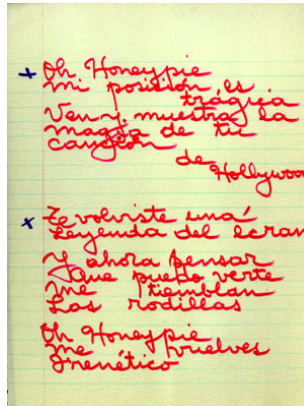 Oh Honeypie
mi posisión es
trágica
Ven y muestra la
magia de tu
canción
de
Hollywoo
Te volviste una
Leyenda del ecran
Y ahora pensar
Que puedo verte
me tiemblan
Las rodillas
Oh Honeypie
me vuelves
Frenético